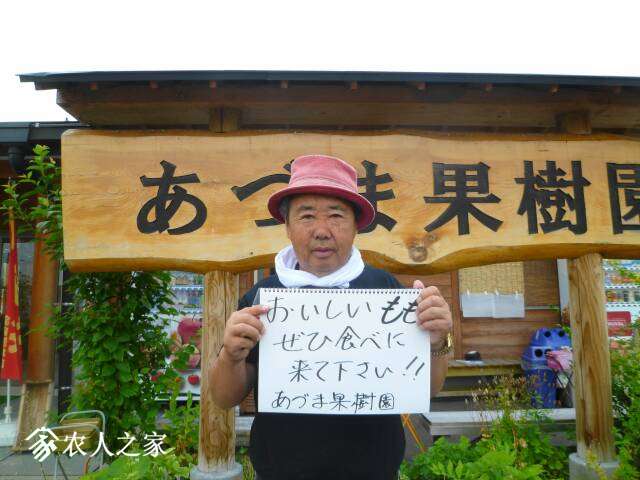 あづま果樹園
おいしいもも
ぜひ食べに
来て下さい!!
あづま果樹園
农人之家